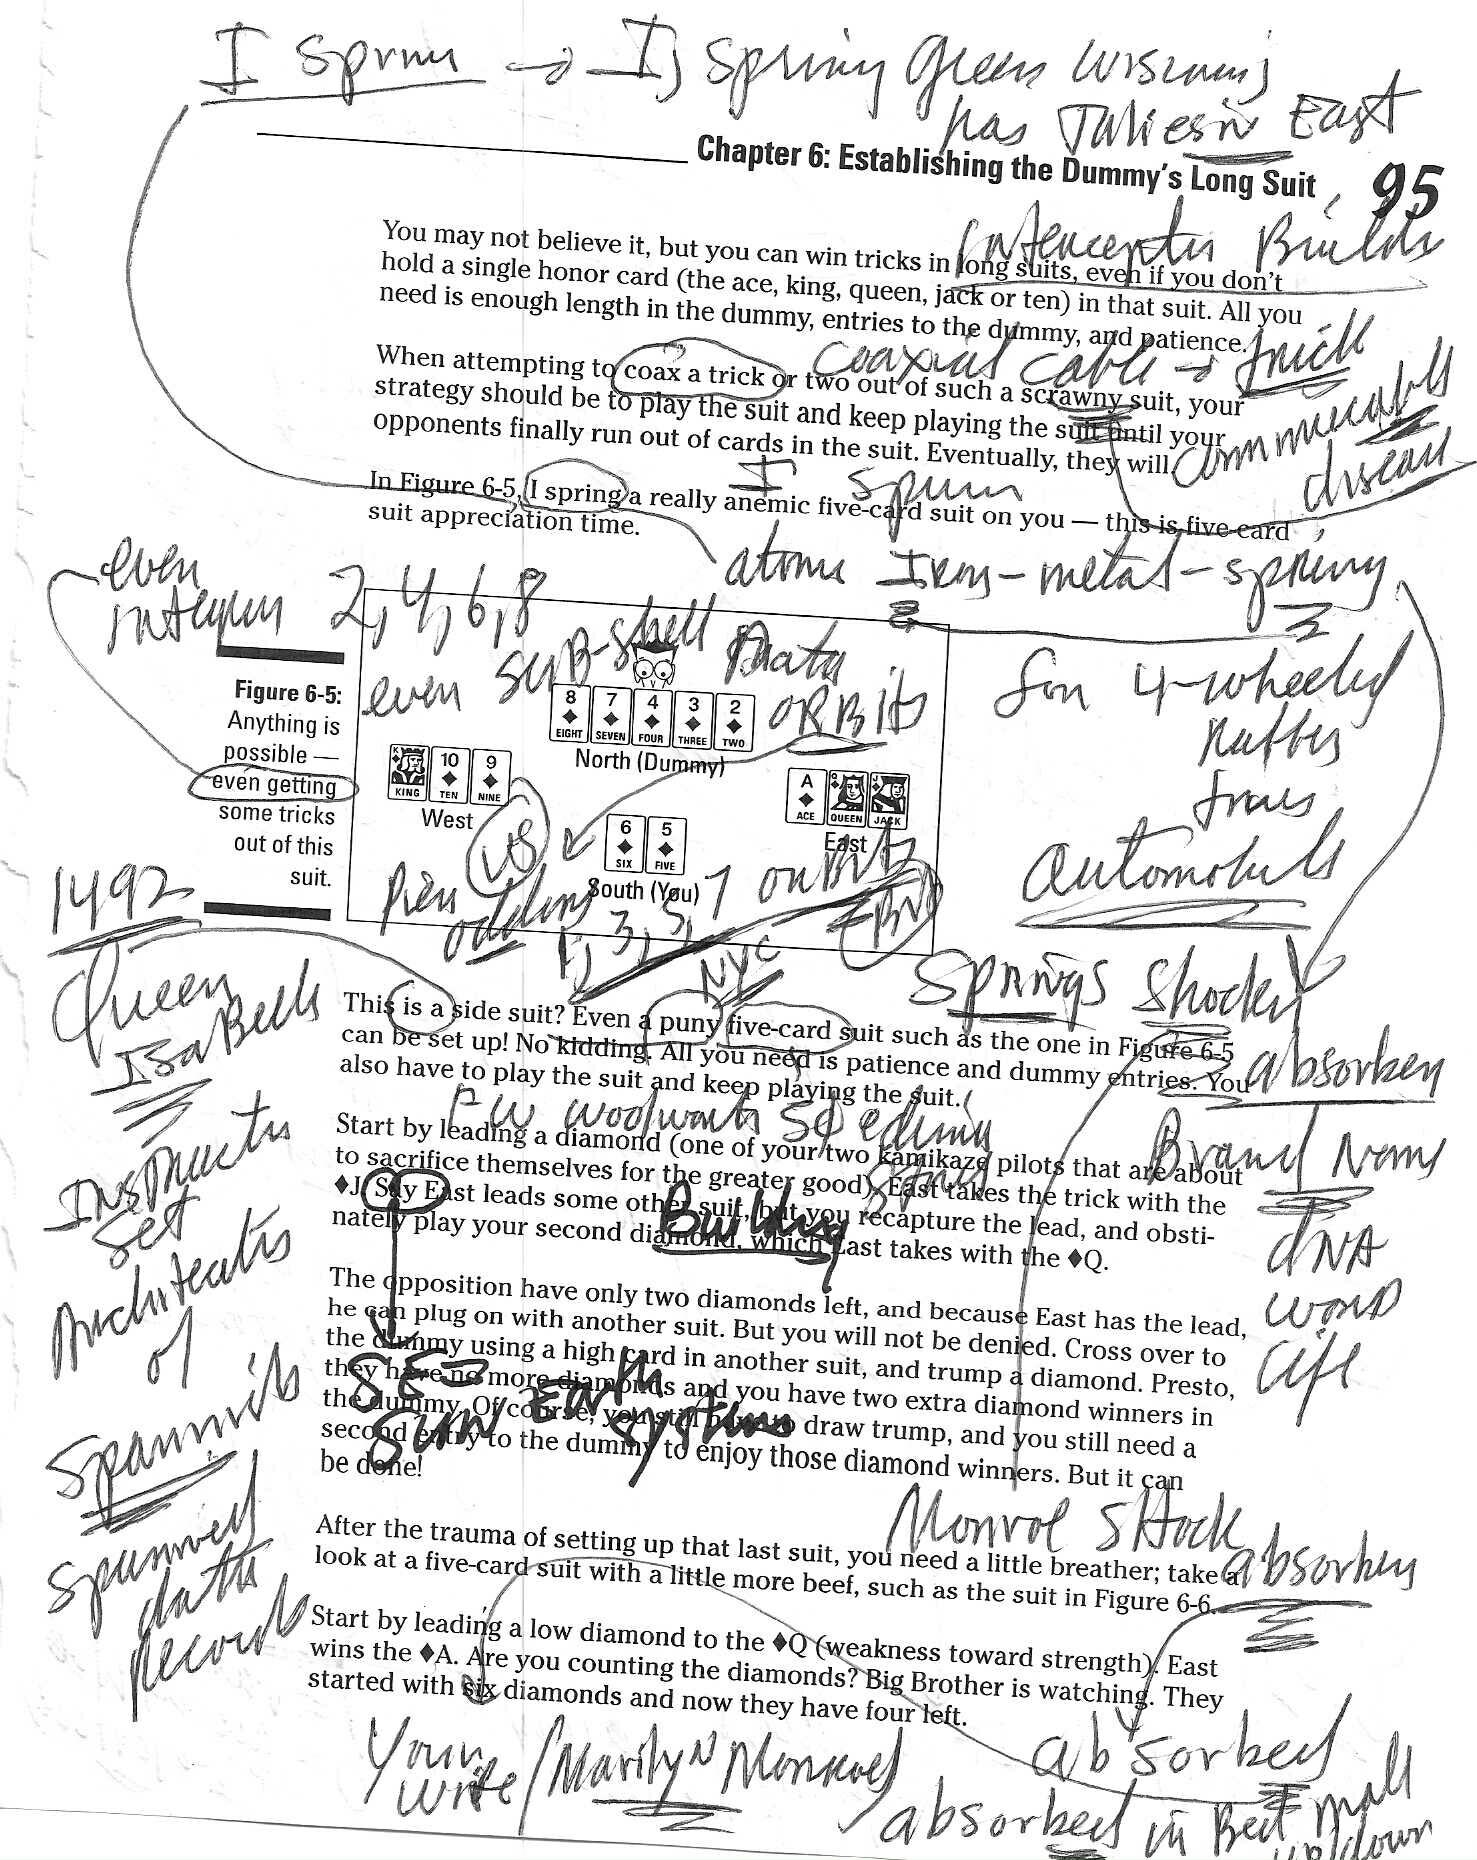 I spring → I) spring Green Wisconsin
has Taliesin East
Chapter 6: Establishing the Dummy's Long Suit
95
Builds
You may not believe it, but you can win tricks in long suits, even if you don't
hold a single honor card (the ace, king, queen, jack or ten) in that suit. All you
need is enough length in the dummy, entries to the dummy, and patience.
coaxial cable → trick
When attempting to coax a trick or two out of such a scrawny suit, your
strategy should be to play the suit and keep playing the suit until your
opponents finally run out of cards in the suit. Eventually, they will.
disease
I
In Figure 6-5, I spring a really anemic five-card suit on you — this is five-card
suit appreciation time.
atoms Iron-metal-spring
even
2, 4, 6, 8
even sub-shell
ORBits
for 4-wheeled
Rubber
automobiles
Figure 6-5:
Anything is
possible —
even getting
some tricks
out of this
suit.
8 EIGHT
7 SEVEN
4 FOUR
3 THREE
2 TWO
North (Dummy)
K KING
10 TEN
9 NINE
West
A ACE
Q QUEEN
J JACK
East
6 SIX
5 FIVE
South (You)
VS
1, 3, 5, 7 orbits
1492
Queen
IsaBella
NYC
Springs Shock
absorber
This is a side suit? Even a puny five-card suit such as the one in Figure 6-5
can be set up! No kidding. All you need is patience and dummy entries. You
also have to play the suit and keep playing the suit.
FW woolworth
Building
Brand Name
DNA
word
life
Instruction
set
Architects
of
Start by leading a diamond (one of your two kamikaze pilots that are about
to sacrifice themselves for the greater good). East takes the trick with the
♦J. Say East leads some other suit, but you recapture the lead, and obsti-
nately play your second diamond, which East takes with the ♦Q.
The opposition have only two diamonds left, and because East has the lead,
he can plug on with another suit. But you will not be denied. Cross over to
the dummy using a high card in another suit, and trump a diamond. Presto,
they have no more diamonds and you have two extra diamond winners in
the dummy. Of course, you still have to draw trump, and you still need a
second entry to the dummy to enjoy those diamond winners. But it can
be done!
SE
Sun Earth
systems
records
Monroe Shock
absorber
After the trauma of setting up that last suit, you need a little breather; take a
look at a five-card suit with a little more beef, such as the suit in Figure 6-6.
Start by leading a low diamond to the ♦Q (weakness toward strength). East
wins the ♦A. Are you counting the diamonds? Big Brother is watching. They
started with six diamonds and now they have four left.
Your
wife/Marilyn Monroe
absorbed
absorbed in